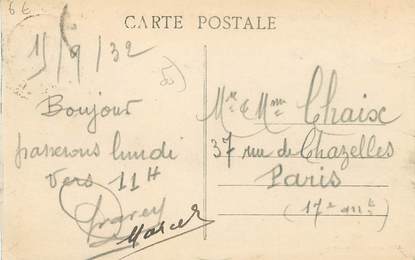 66
CARTE POSTALE
11/9/32
Bonjour
passerons lundi
vers 11H
Marcel
Mr & Mme Chaix
37 rue de Chazelles
Paris
(17e arrt)